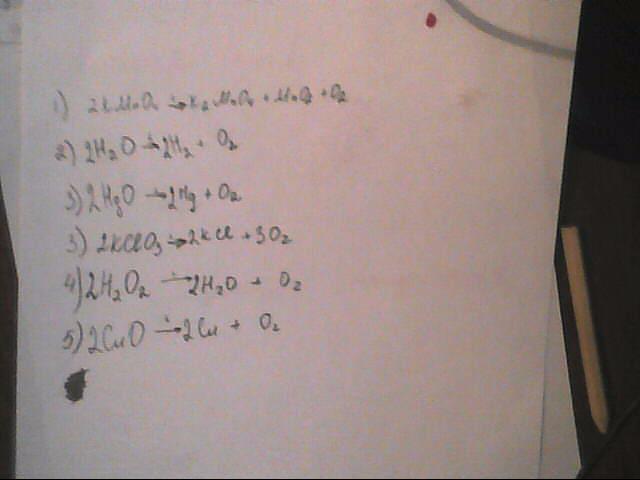 1) 2KMnO4 →t K2MnO4 + MnO2 + O2
2) 2H2O →t 2H2 + O2
3) 2HgO → 2Hg + O2
3) 2KClO3 →t 2KCl + 3O2
4) 2H2O2 →t 2H2O + O2
5) 2CuO →t 2Cu + O2